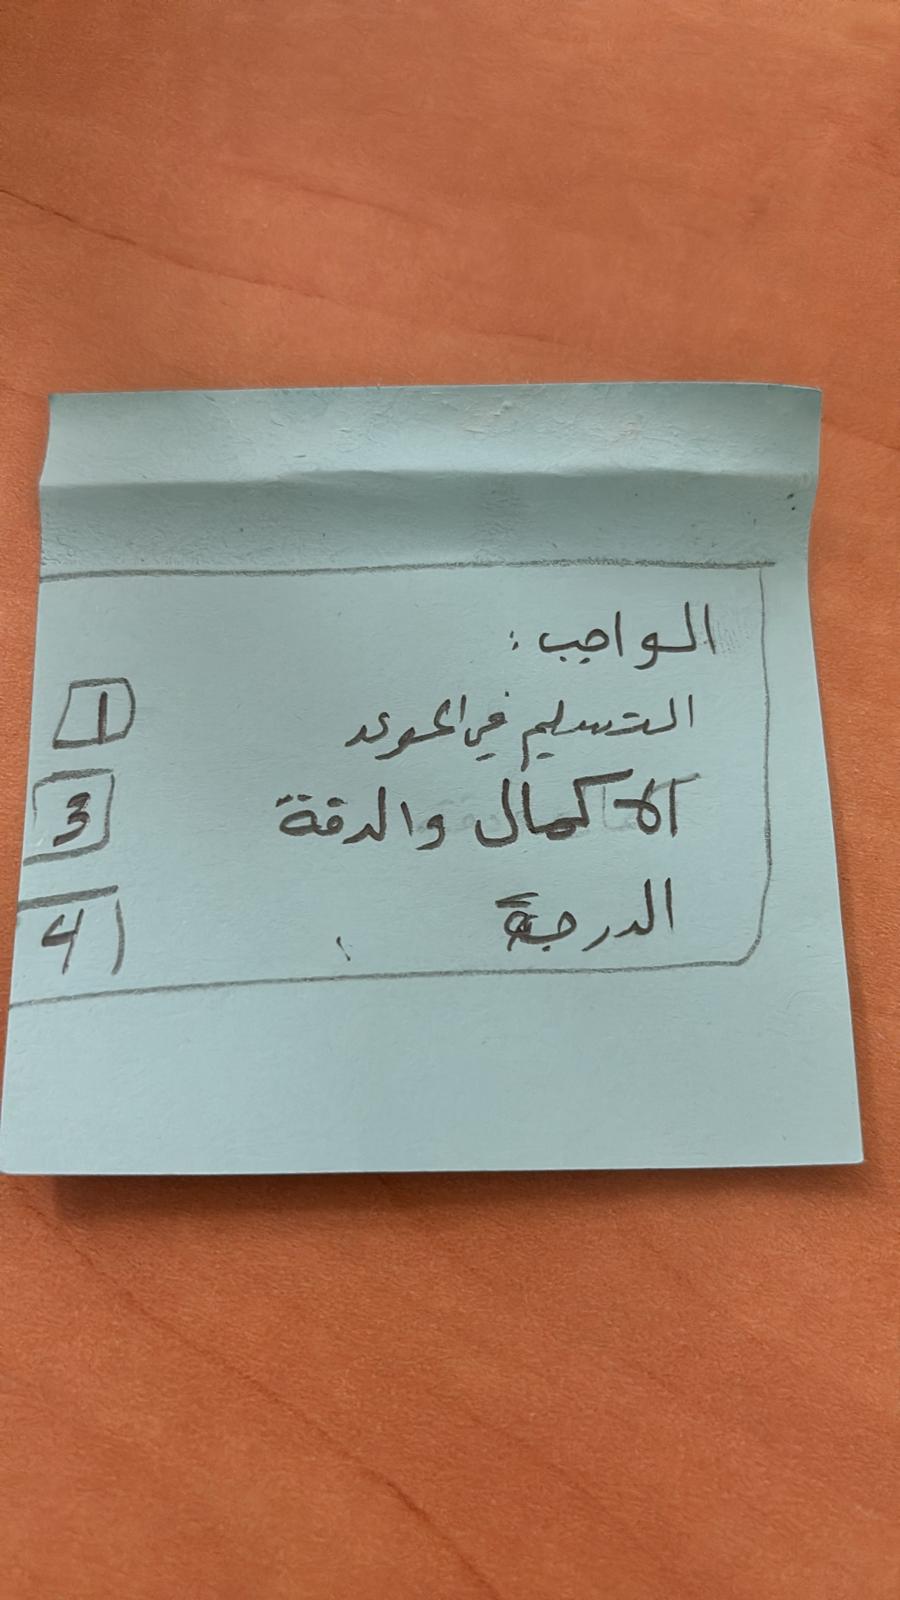 الواجب:
التسليم في الموعد 1
الاكمال والدقة 3
الدرجة 4